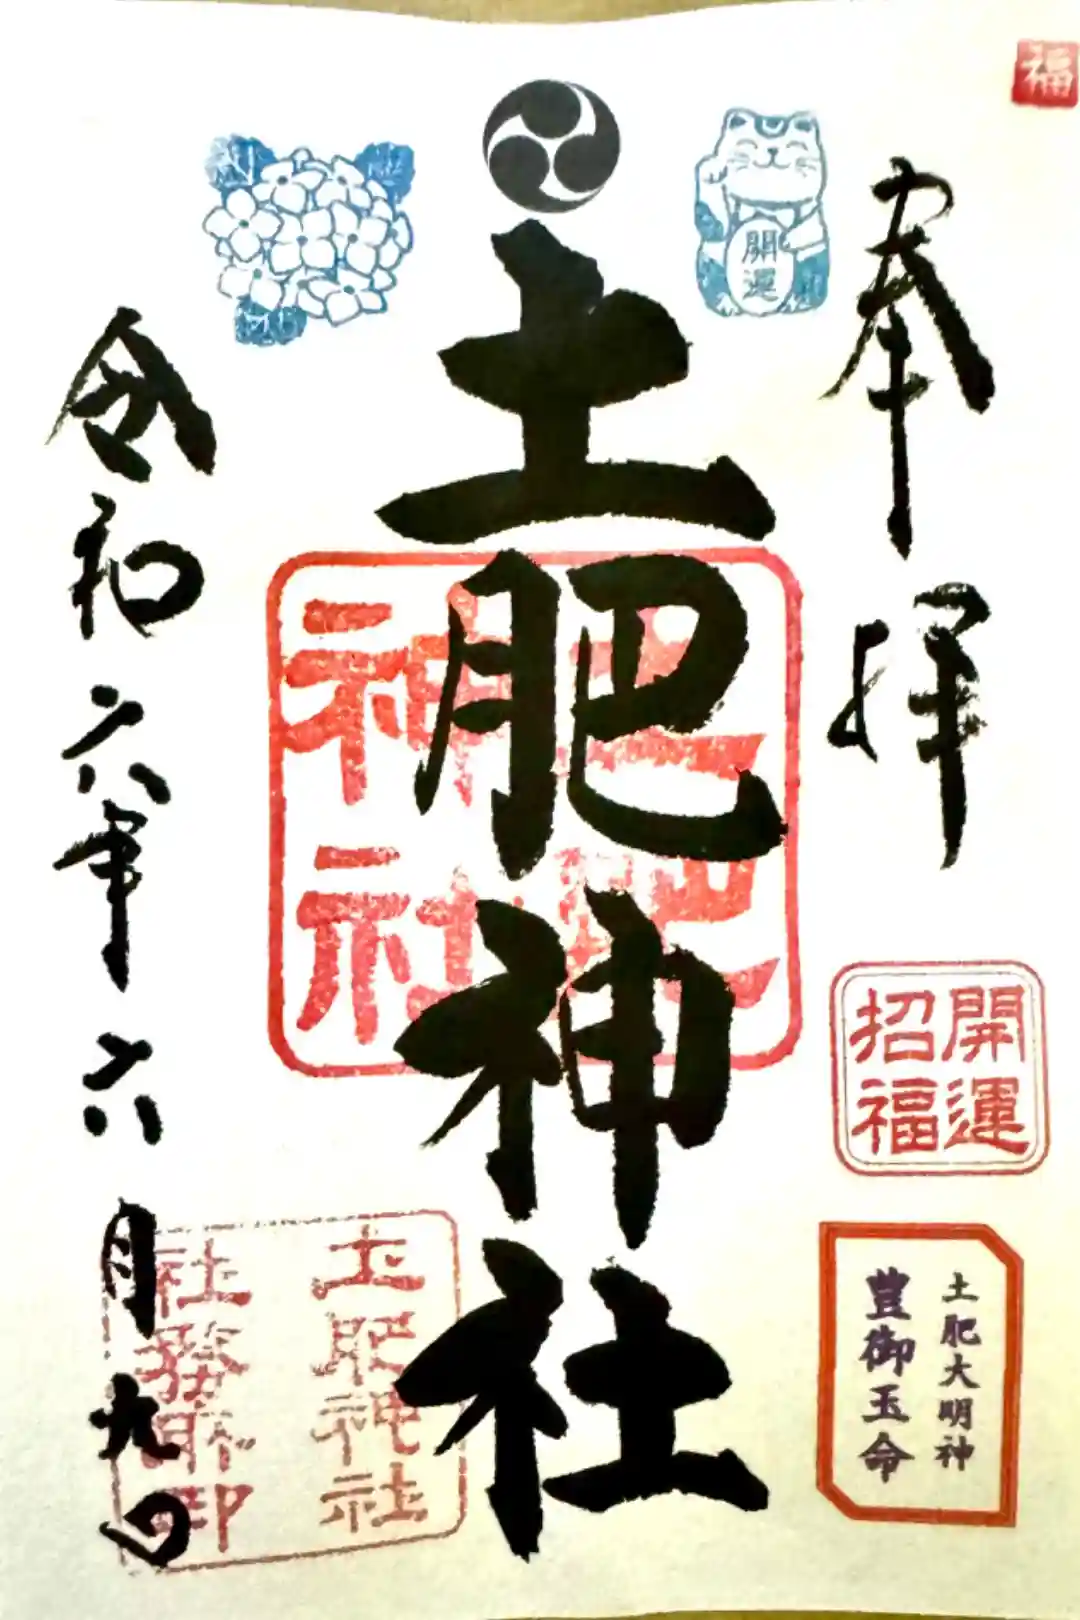 福
奉拝
開運
招福
土肥大明神
豊御玉命
開運
土肥神社
土肥
神社
令和六年六月九日
土肥神社
社務所印